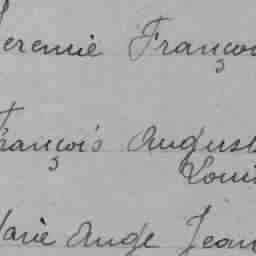 Jeremie Françoi
François August
Louis
Marie Ange Jean